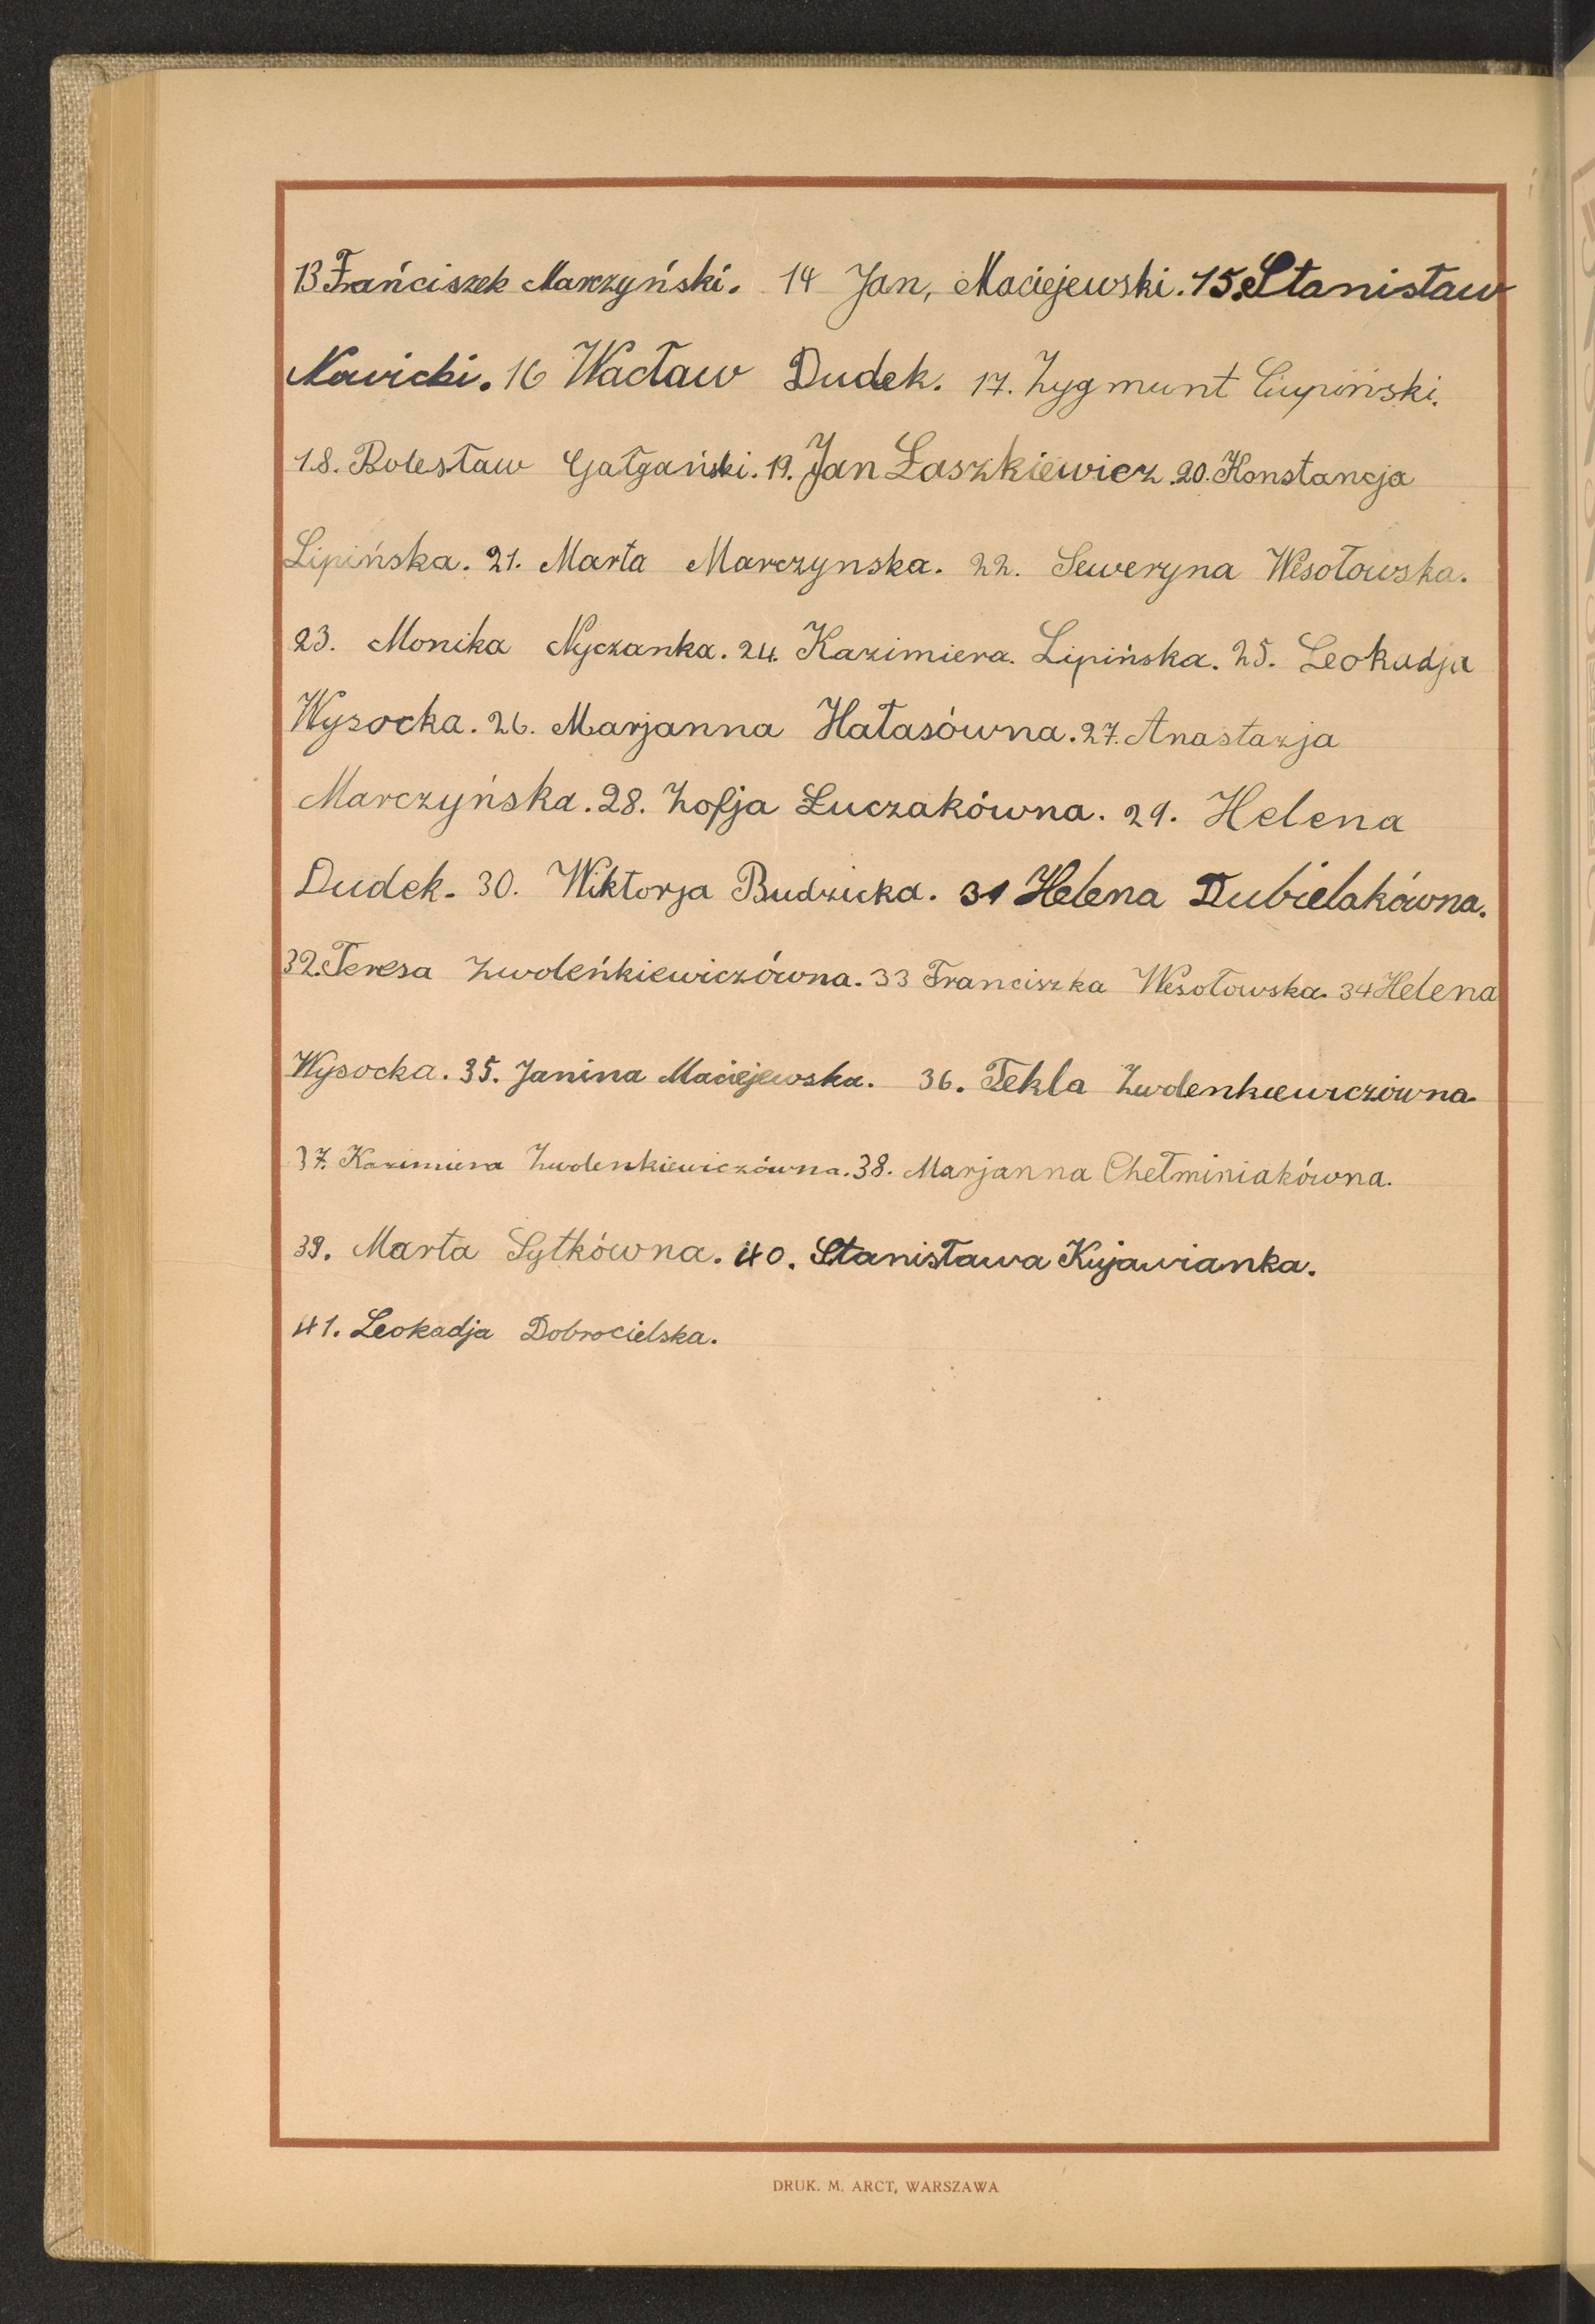 13 Frańciszek Marczyński. 14 Jan, Maciejewski. 15. Stanisław
Nowicki. 16 Wacław Dudek. 17. Zygmunt Ciupiński.
18. Bolesław Gałgański. 19. Jan Łaszkiewicz. 20. Konstancja
Lipińska. 21. Marta Marczynska. 22. Seweryna Wesołowska.
23. Monika Nyczanka. 24. Kazimiera. Lipińska. 25. Leokadja
Wysocka. 26. Marjanna Hałasówna. 27. Anastazja
Marczyńska. 28. Zofja Łuczakówna. 29. Helena
Dudek. 30. Wiktorja Budzicka. 31 Helena Dubielakówna.
32. Teresa Zwoleńkiewiczówna. 33 Franciszka Wesołowska. 34 Helena
Wysocka. 35. Janina Maciejewska. 36. Tekla Zwolenkiewiczówna
37. Kazimiera Zwolenkiewiczówna. 38. Marjanna Chełminiakówna.
39. Marta Sytkówna. 40. Stanisława Kujawianka.
41. Leokadja Dobrocielska.
DRUK. M. ARCT, WARSZAWA